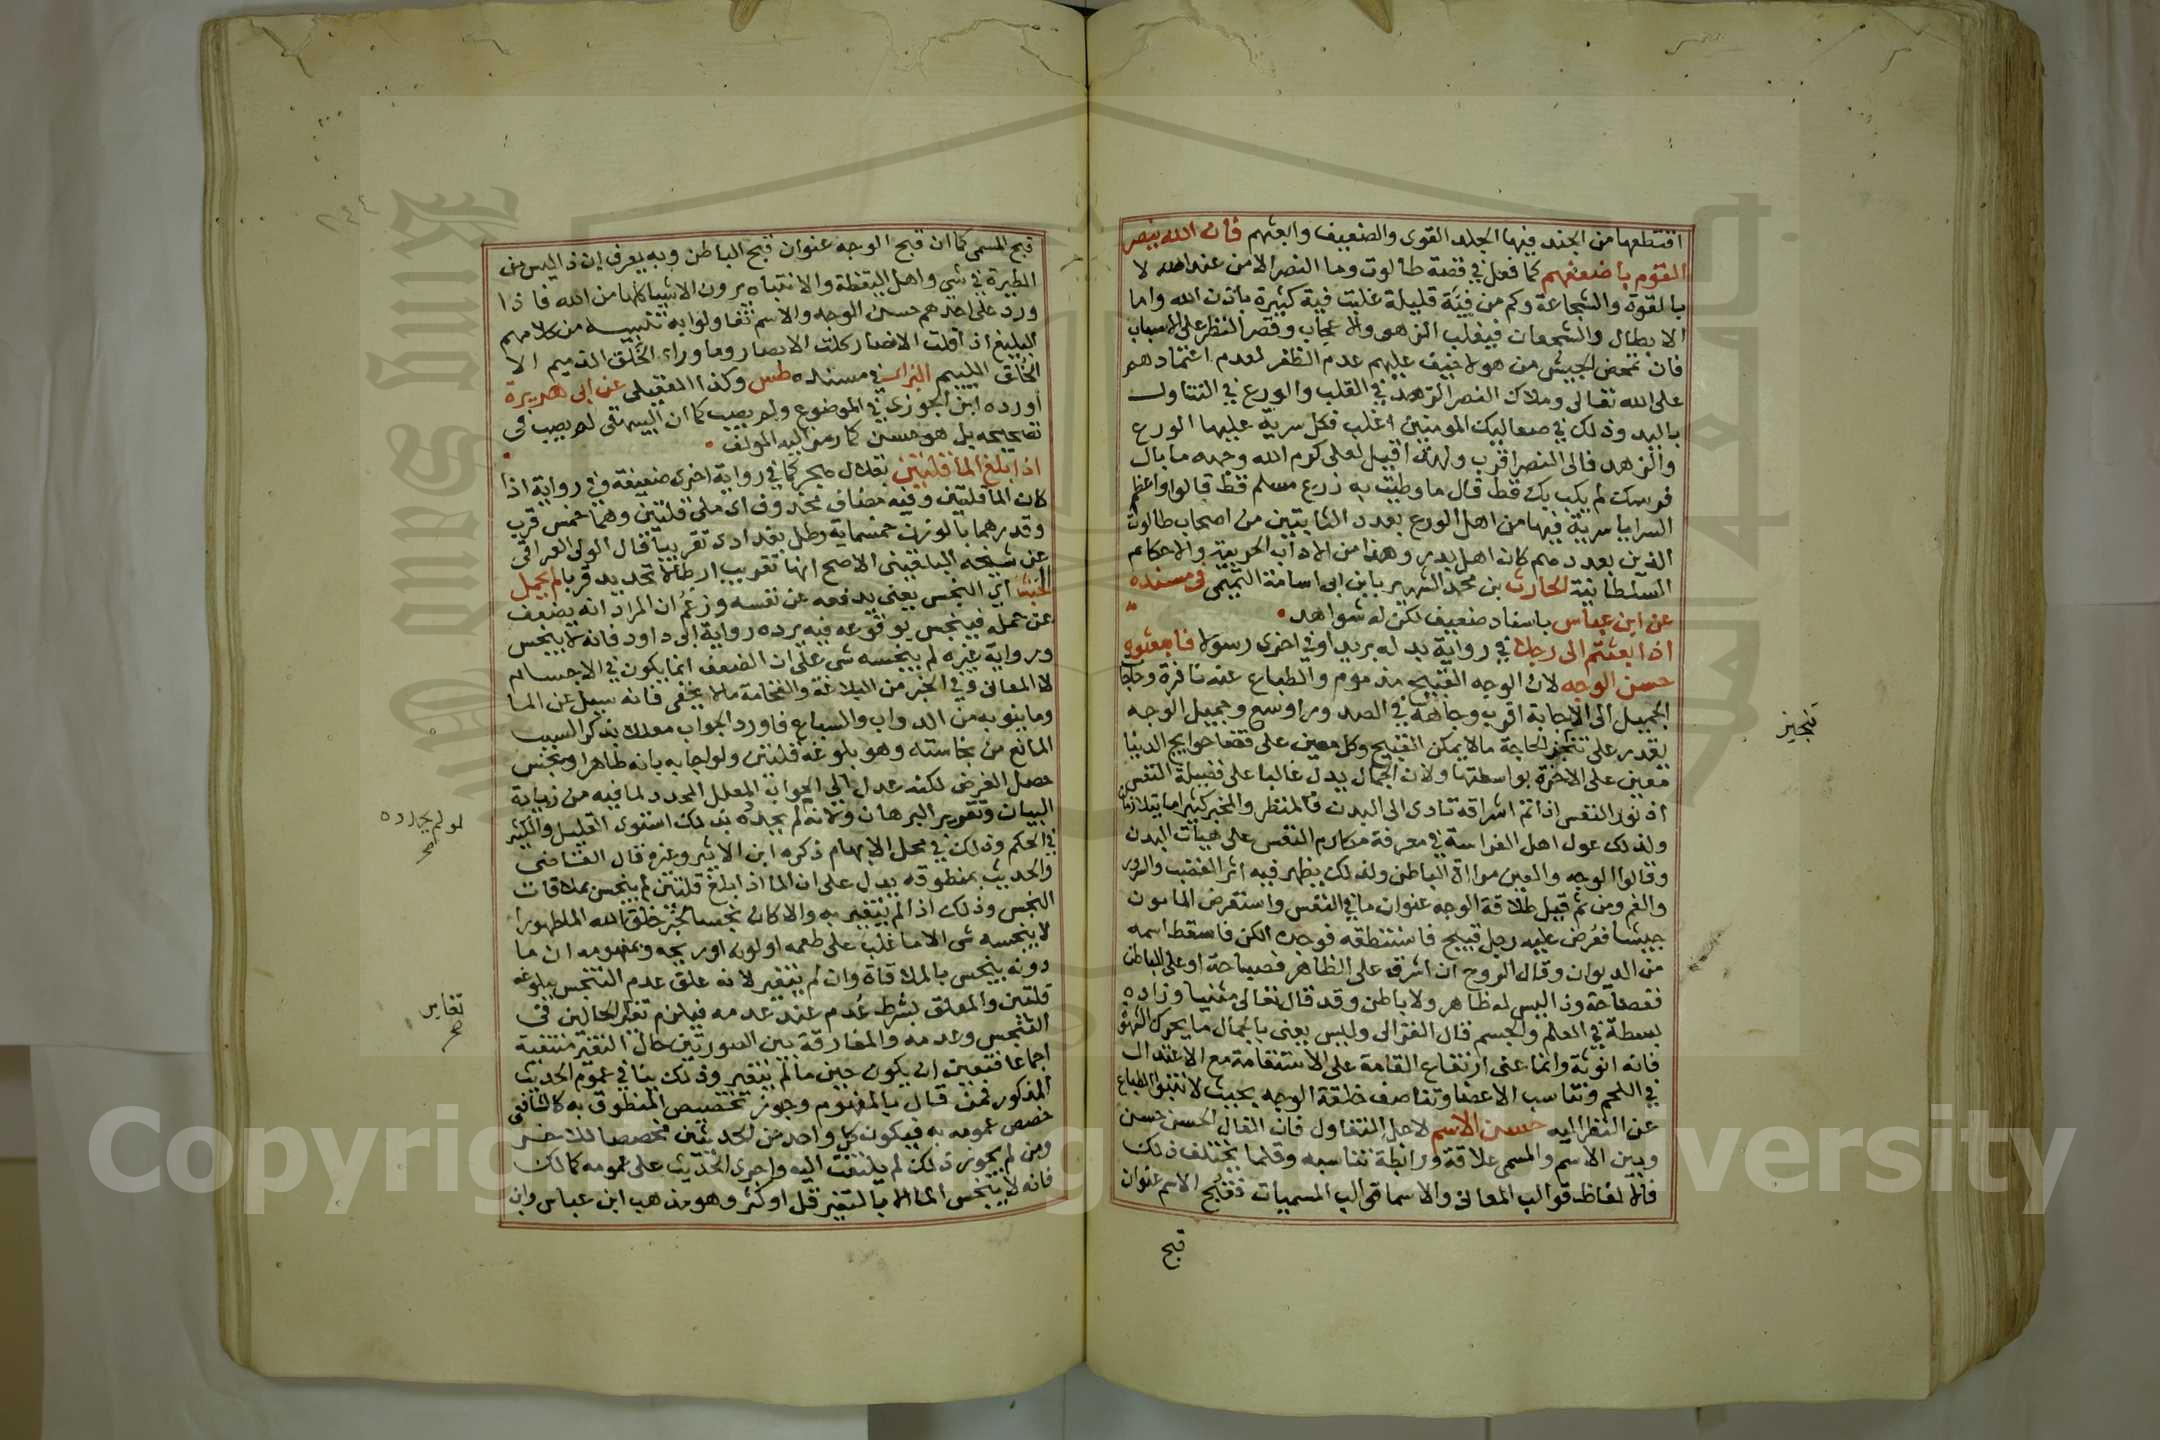 اقتطعها من الجند فيها الجلد القوى والضعيف وابعثهم فان الله ينصر
القوم باضعفهم كما فعل في قصة طالوت وما النصر الا من عند الله لا
بالقوة والشجاعة وكم من فية قليلة غلبت فية كثيرة باذن الله واما
الابطال والشجعان فيغلب الزهو والاعجاب وقصر النظر على الاسباب
فان تمحض الجيش من هولا خيف عليهم عدم الظفر لعدم اعتمادهم
على الله تعالى وملاك النصر الزهد في القلب والورع في التناول
باليد وذلك في صعاليك المومنين اغلب فكل سرية عليها الورع
والزهد فالى النصر اقرب ولهذا قيل لعلى كرم الله وجهه ما بال
فرسك لم يكب بك قط قال ما وطيت به زرع مسلم قط قالوا واعظم
السرايا سرية فيها من اهل الورع بعدد الثابتين من اصحاب طالوت
الذين بعددهم كان اهل بدر وهذا من الاداب الحربية والاحكام
السلطانية الحارث بن محمد الشهير بابن ابى اسامة التميمى فى مسنده
عن ابن عباس باسناد ضعيف لكن له شواهد
اذا بعثتم الى رجلا في رواية بدله بريدا وفي اخرى رسولا فابعثوه
حسن الوجه لان الوجه القبيح مذموم والطباع عنه نافرة وحاجات
الجميل الى الاجابة اقرب وجاهه في الصدور اوسع وجميل الوجه
يقدر على تنجز الحاجة مالا يمكن القبيح وكل معين على قضا حوايج الدنيا
معين على الاخرة بواسطتها ولان الجمال يدل غالبا على فضيلة النفس
اذ نور النفس اذا تم اشراقه تادى الى البدن فالمنظر والمخبر كثيرا ما يتلازمان
ولذلك عول اهل الفراسة في معرفة مكارم النفس على هيات البدن
وقالوا الوجه والعين مراة الباطن ولذلك يظهر فيه اثر الغضب والسرور
والغم ومن ثم قيل طلاقة الوجه عنوان ما في النفس واستعرض المامون
جيشا فعرض عليه رجل قبيح فاستنطقه فوجده الكن فاسقط اسمه
من الديوان وقال الروح ان اشرق على الظاهر فصباحة او على الباطن
ففصاحة وذا ليس له ظاهر ولا باطن وقد قال تعالى مثنيا وزاده
بسطة في العلم والجسم قال الغزالى وليس يعنى بالجمال ما يحرك الشهوة
فانه انوثة وانما عنى ارتفاع القامة على الاستقامة مع الاعتدال
في اللحم وتناسب الاعضا وتناصف خلقة الوجه بحيث لا تنبو الطباع
عن النظر اليه حسن الاسم لاجل التفاول فان الفال الحسن حسن
وبين الاسم والمسمى علاقة ورابطة تناسبه وقلما يختلف ذلك
فالالفاظ قوالب المعانى والاسما قوالب المسميات فقبح الاسم عنوان
قبح
تنجيز
قبح المسمى كما ان قبح الوجه عنوان قبح الباطن وبه يعرف ان ذا ليس من
الطيرة في شى واهل اليقظة والانتباه يرون الاشيا كلها من الله فاذا
ورد على احدهم حسن الوجه والاسم تفاولوا به تنبيه من كلامهم
البليغ اذا قلت الانصار كلت الابصار وما وراء الخلق الذميم الا
الخلق الليم البزار في مسنده طس وكذا العقيلى عن ابى هريرة
اورده ابن الجوزى في الموضوع ولم يصب كما ان الهيتمى لم يصب فى
تصحيحه بل هو حسن كما رمز اليه المولف
اذا بلغ الما قلتين بقلال هجر كما في رواية اخرى ضعيفة وفي رواية اذا
كان الما قلتين وفيه مضاف محذوف اى ملى قلتين وهما خمس قرب
وقدرهما بالوزن خمسماية رطل بغدادى تقريبا قال الولى العراقى
عن شيخه البلقينى الاصح انها تقريب ارطالا تحديد قربا لم يحمل
الخبث اى النجس يعنى يدفعه عن نفسه وزعم ان المراد انه يضعف
عن حمله فينجس بوقوعه فيه يرده رواية ابى داود فانه لا ينجس
ورواية غيره لم ينجسه شى على ان الضعف انما يكون في الاجسام
لا المعانى وفي الخبر من البلاغة والفخامة مالا يخفى فانه سيل عن الما
وما ينوبه من الدواب والسباع فاورد الجواب معللا بذكر السبب
المانع من نجاسته وهو بلوغه قلتين ولو اجابه بانه طاهر او ينجس
حصل الغرض لكنه عدل الى الجواب المعلل المحدد لما فيه من زيادة
البيان وتقرير البرهان ولانه لم يحده بذلك استوى القليل والكثير
في الحكم وذلك في محل الابهام ذكره ابن الاثير وغيره قال القاضى
والحديث بمنطوقه يدل على ان الما اذا بلغ قلتين لم ينجس بملاقات
النجس وذلك اذا لم يتغير به والا كان نجسا لخبر خلق الله الما طهورا
لا ينجسه شى الا ما غلب على طعمه او لونه او ريحه وبمفهومه ان ما
دونه ينجس بالملاقاة وان لم يتغير لانه علق عدم التنجس ببلوغه
قلتين والمعلق بشرط عدم عند عدمه فيلزم تغاير الحالين فى
التنجس وعدمه والمفارقة بين الصورتين حال التغير منتفية
اجماعا فتعين ان يكون حين ما لم يتغير وذلك ينافي عموم الحديث
المذكور فمن قال بالمفهوم وجوز تخصيص المنطوق به كالشافعى
خصص عمومه به فيكون كل واحد من الحديثين مخصصا للاخر
ومن لم يجوز ذلك لم يلتفت اليه واجرى الحديث على عمومه كمالك
فانه لا ينجس الما الا بالتغير قل او كثر وهو مذهب ابن عباس وابن
لو لم يحدده
صح
تغاير
صح
Copyright © King Saud University